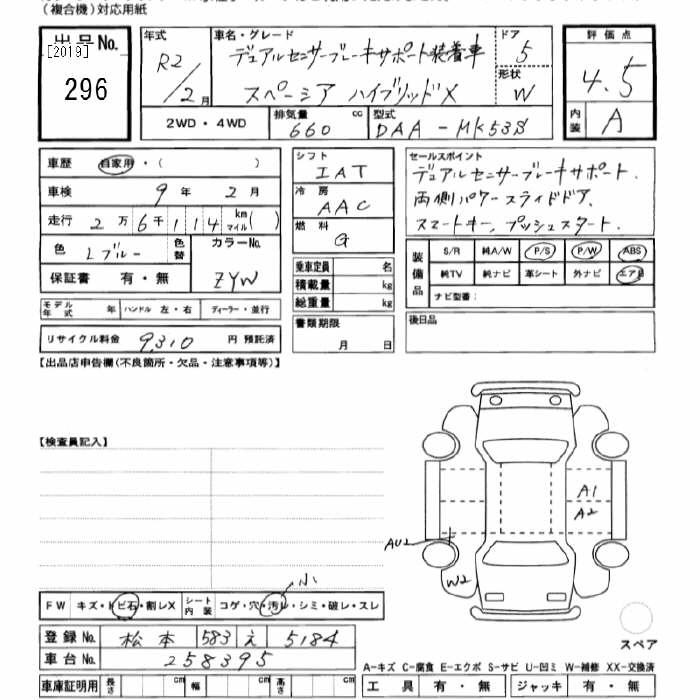 (複合機)対応用紙
出品No.
[2019]
296
年式
R2/2月
車名・グレード
デュアルセンサーブレーキサポート装着車
スペーシア ハイブリッドX
ドア
5
形状
W
評価点
4.5
内装
A
2WD・4WD
排気量
660 cc
型式
DAA-MK53S
車歴 自家用・( )
車検 9年 2月
走行 2万6千114 km マイル( )
色 Lブルー
色替
カラーNo.
ZYW
保証書 有・無
モデル年式 年 ハンドル 左・右 ディーラー・並行
リサイクル料金 9,310 円 預託済
シフト
IAT
冷房
AAC
燃料
G
乗車定員 名
積載量 kg
総重量 kg
書類期限
月 日
セールスポイント
デュアルセンサーブレーキサポート.
両側パワースライドドア.
スマートキー.プッシュスタート.
装備品
S/R 純A/W P/S P/W ABS
純TV 純ナビ 革シート 外ナビ エアB
ナビ型番:
後日品
【出品店申告欄(不良箇所・欠品・注意事項等)】
【検査員記入】
A1
A2
AU2
W2
小
FW キズ・トビ石・割レX シート内装 コゲ・穴・汚レ・シミ・破レ・スレ
登録No. 松本 583 え 5184
車台No. 258395
スペア
A-キズ C-腐食 E-エクボ S-サビ U-凹ミ W-補修 XX-交換済
車庫証明用 長さ cm 幅 cm 高さ cm
工具 有・無 ジャッキ 有・無